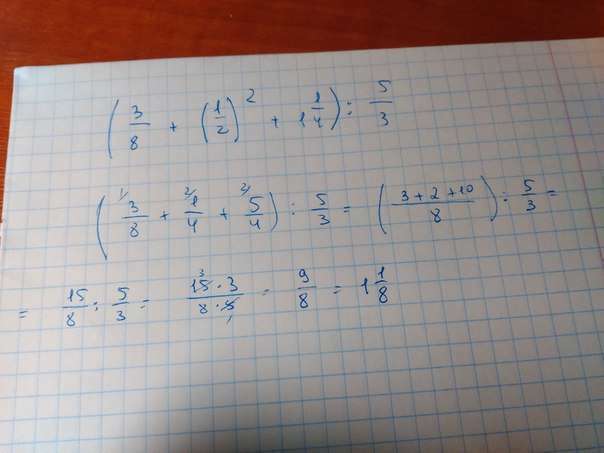 (3/8 + (1/2)^2 + 1 1/4) : 5/3
(^1/ 3/8 + ^2/ 1/4 + ^2/ 5/4) : 5/3 = ((3 + 2 + 10)/8) : 5/3 =
= 15/8 : 5/3 = (15^3 · 3)/(8 · 5_1) = 9/8 = 1 1/8